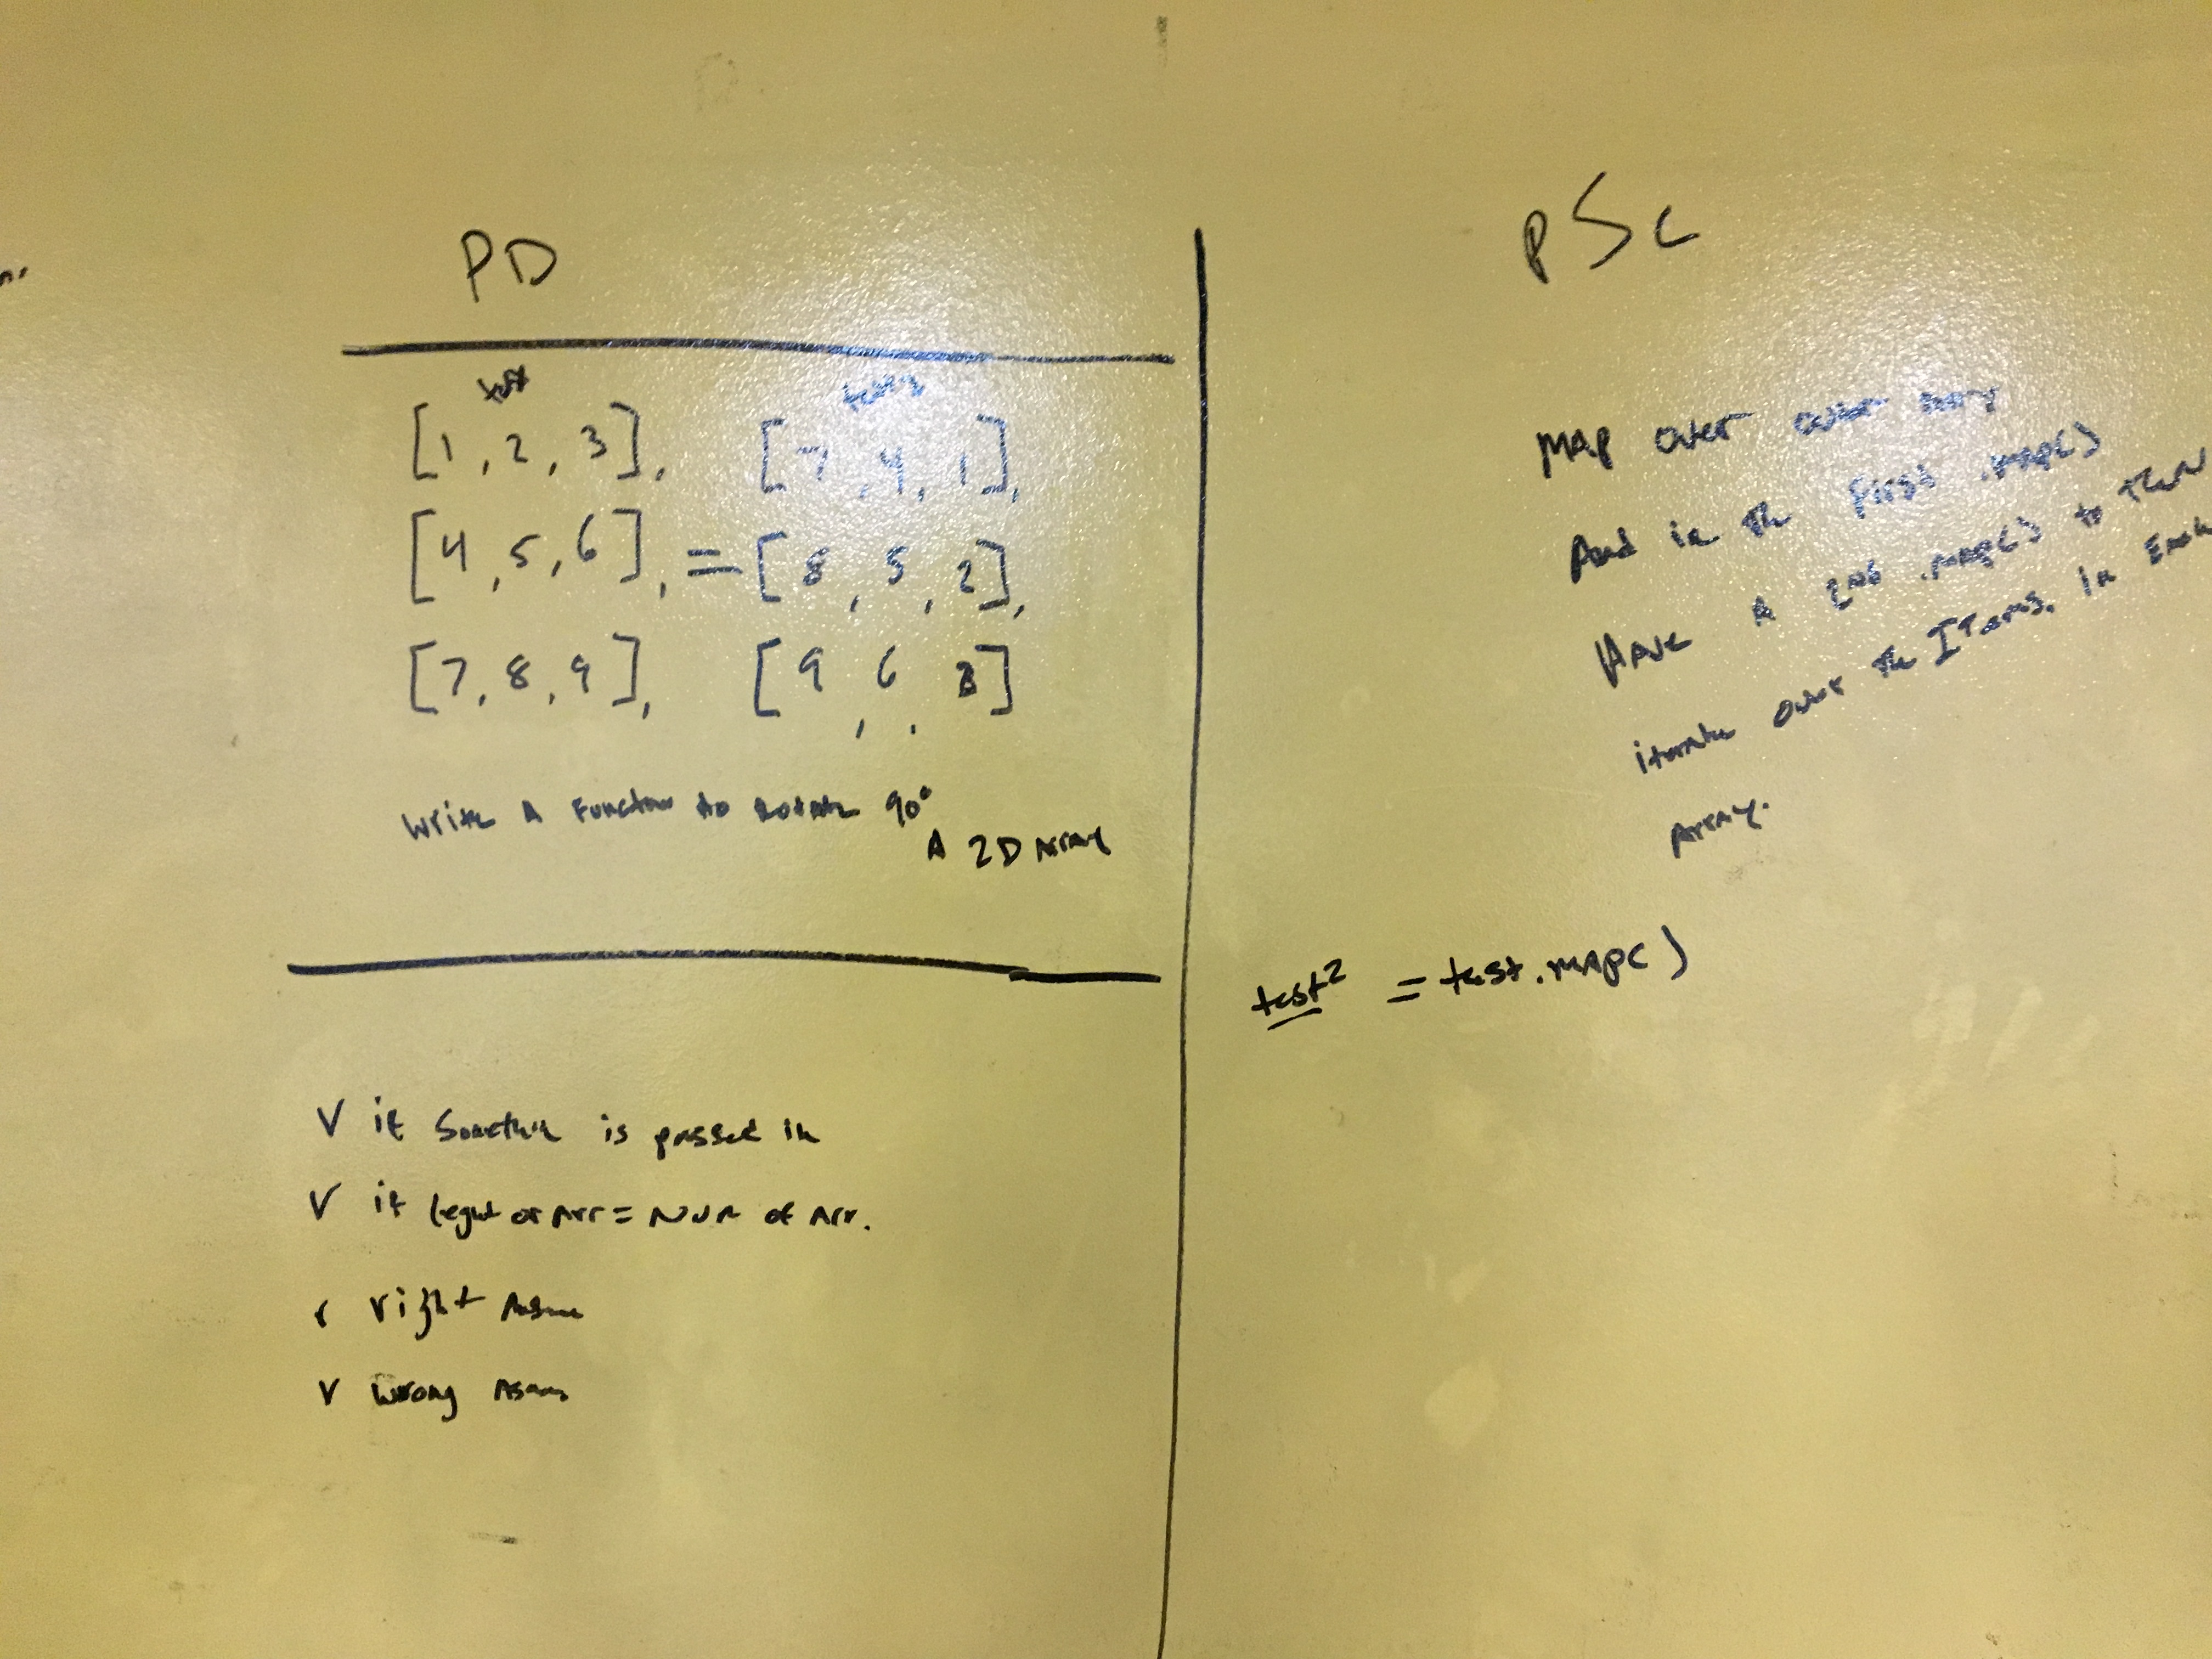 PD
test
[1, 2, 3], [7, 4, 1],
[4, 5, 6], = [8, 5, 2],
[7, 8, 9], [9, 6, 3]
Write A Function to Rotate 90°
A 2D Array
V if Something is passed in
V if lengt of Arr = NUM of Arr.
right
V wrong
PSc
MAP over outer Array
And in the first .MAP()
HAVE A 2nd .MAP() to then
iterate over the Items. in Each
Array.
test2 = test.MAP()